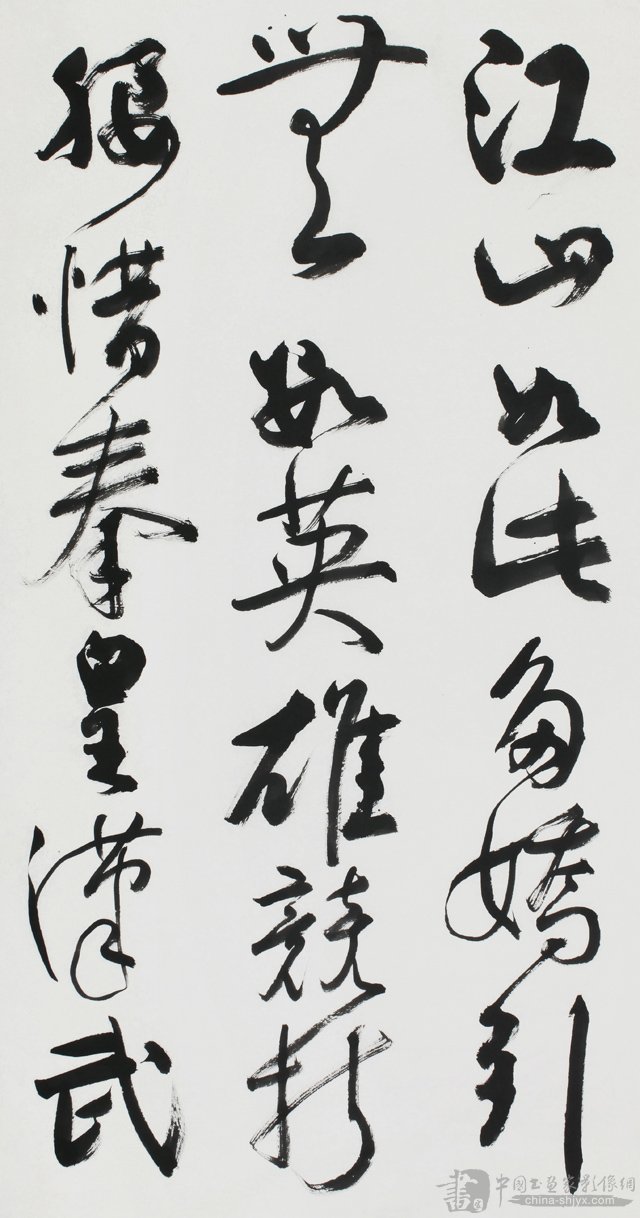 江山如此多嬌引
無數英雄競折
腰惜秦皇漢武
中国书画家影像網
china-shjyx.com